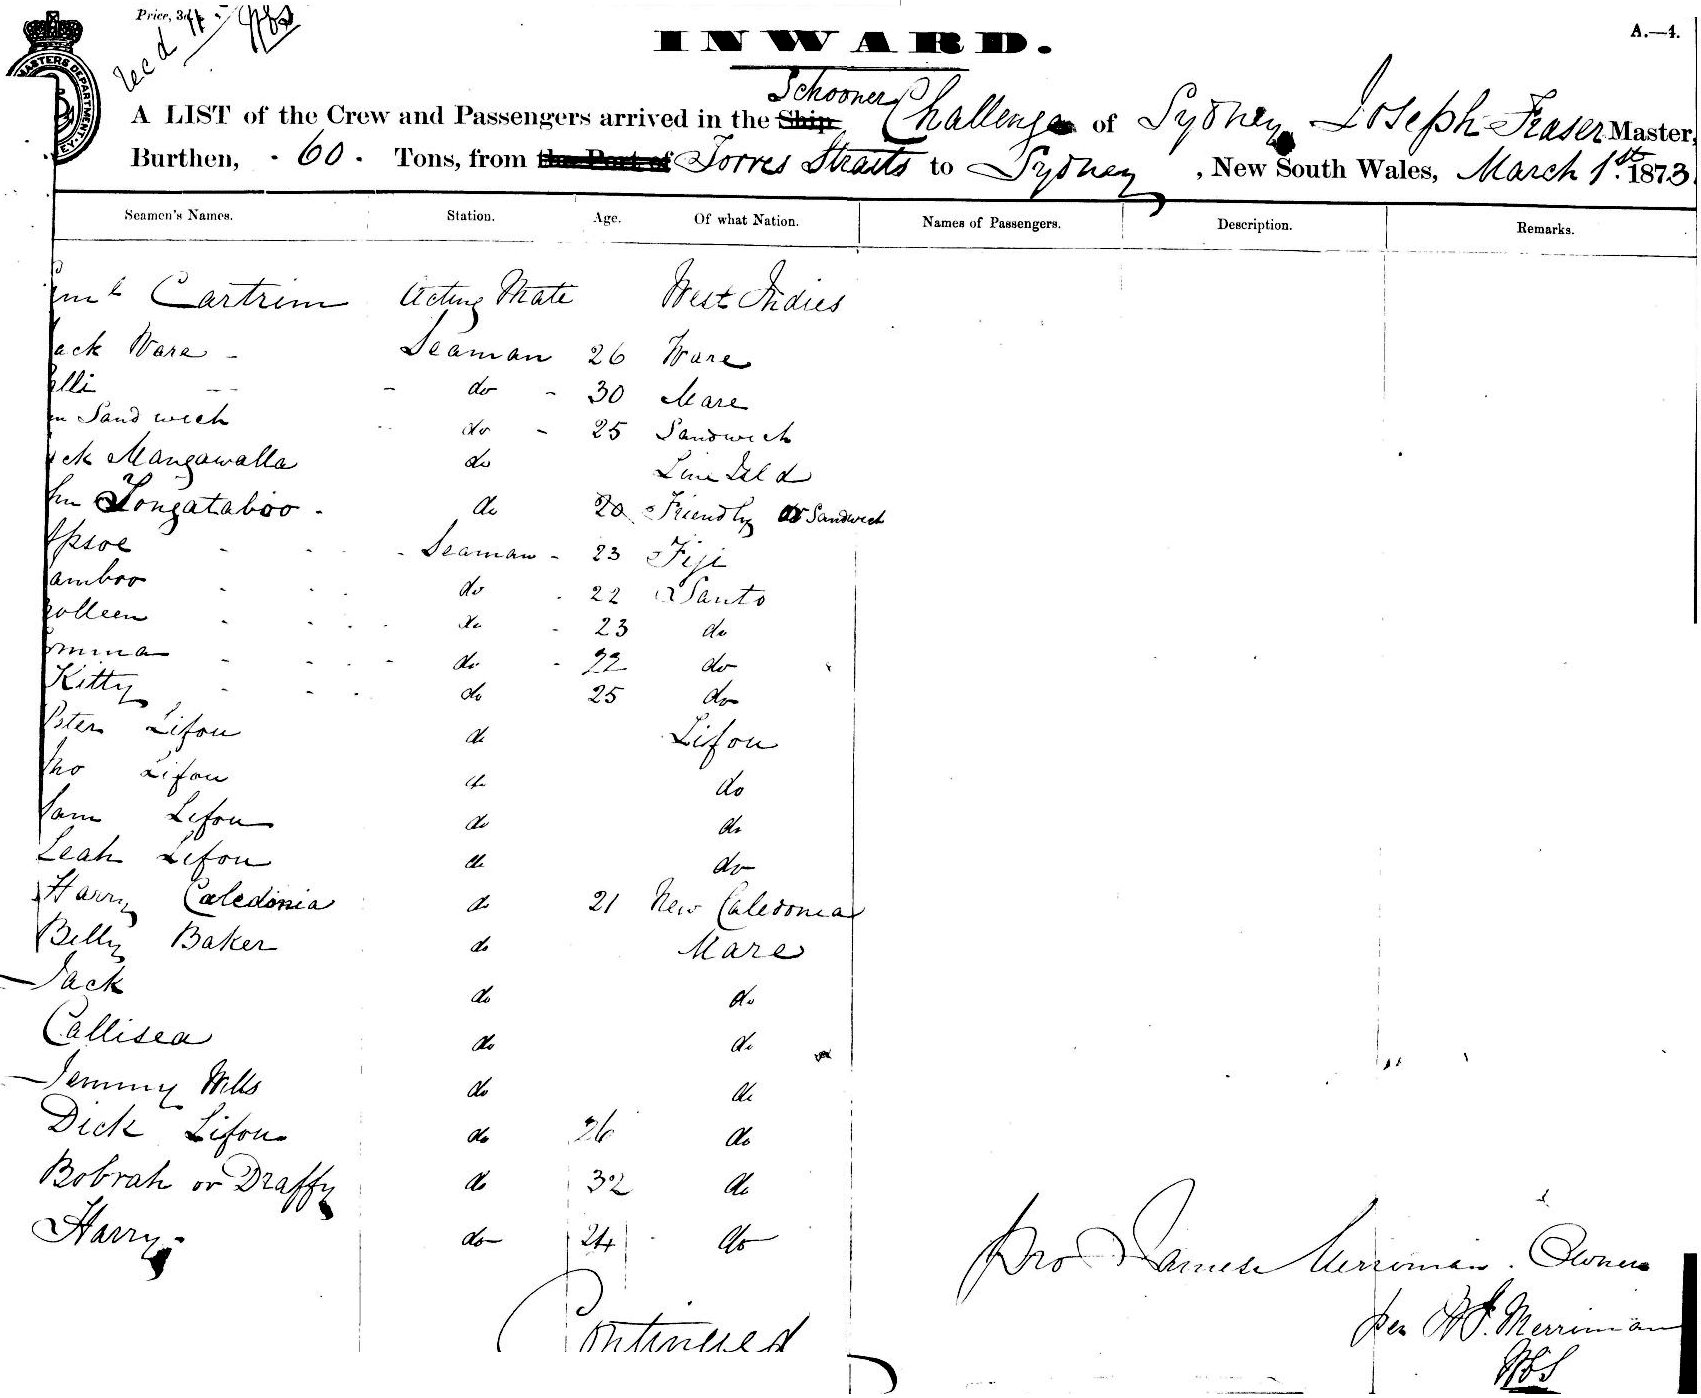 Price, 3d.
Rec'd
INWARD.
A.—4.
MASTERS DEPARTMENT
Schooner
A LIST of the Crew and Passengers arrived in the Ship Challenge of Sydney Joseph Fraser Master,
Burthen, 60 Tons, from the Port of Torres Straits to Sydney, New South Wales, March 1st. 1873
Seamen's Names. Station. Age. Of what Nation. Names of Passengers. Description. Remarks.
Cartrim Acting Mate West Indies
ack Ware - Seaman 26 Ware
elli - do - 30 Mare
Sandwich do - 25 Sandwich
ck Mangawalla do Line Isld
hn Tongataboo - do 20 Friendly or Sandwich
Seaman - 23 Fiji
amboo do 22 Santo
olleen do - 23 do
mma do - 22 do
Kitty do 25 do
Peter Lifou do Lifou
Jno Lifou do do
Sam Lifou do do
Leah Lifou do do
Harry Caledonia do 21 New Caledonia
Billy Baker do Mare
Jack do do
Callisea do do
Jemmy Wills do do
Dick Lifou do 26 do
Bobrah or Draffy do 32 do
Harry - do 24 do
pro James Merriman. Owner
per Merriman
Continued